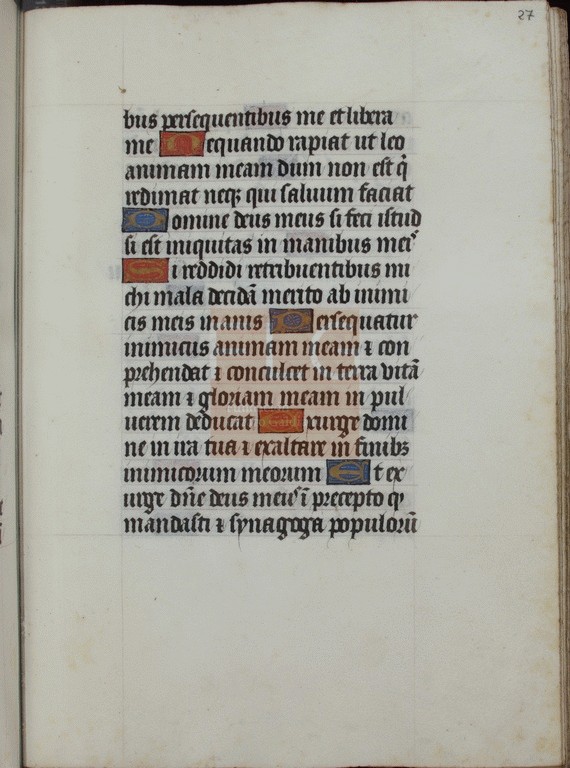 27
bus persequentibus me et libera
me Nequando rapiat ut leo
animam meam dum non est q̄
redimat neqꝫ qui saluum faciat
Domine deus meus si feci istud
si est iniquitas in manibus meis
Si reddidi retribuentibus mi
chi mala decidā merito ab inimi
cis meis inanis Persequatur
inimicus animam meam ⁊ con
prehendat ⁊ conculcet in terra vitā
meam ⁊ gloriam meam in pul
uerem deducat Exurge domi
ne in ira tua ⁊ exaltare in finibꝫ
inimicorum meorum Et ex
urge dn̄e deus meus ī precepto ꝙ
mandasti ⁊ synagoga populorū